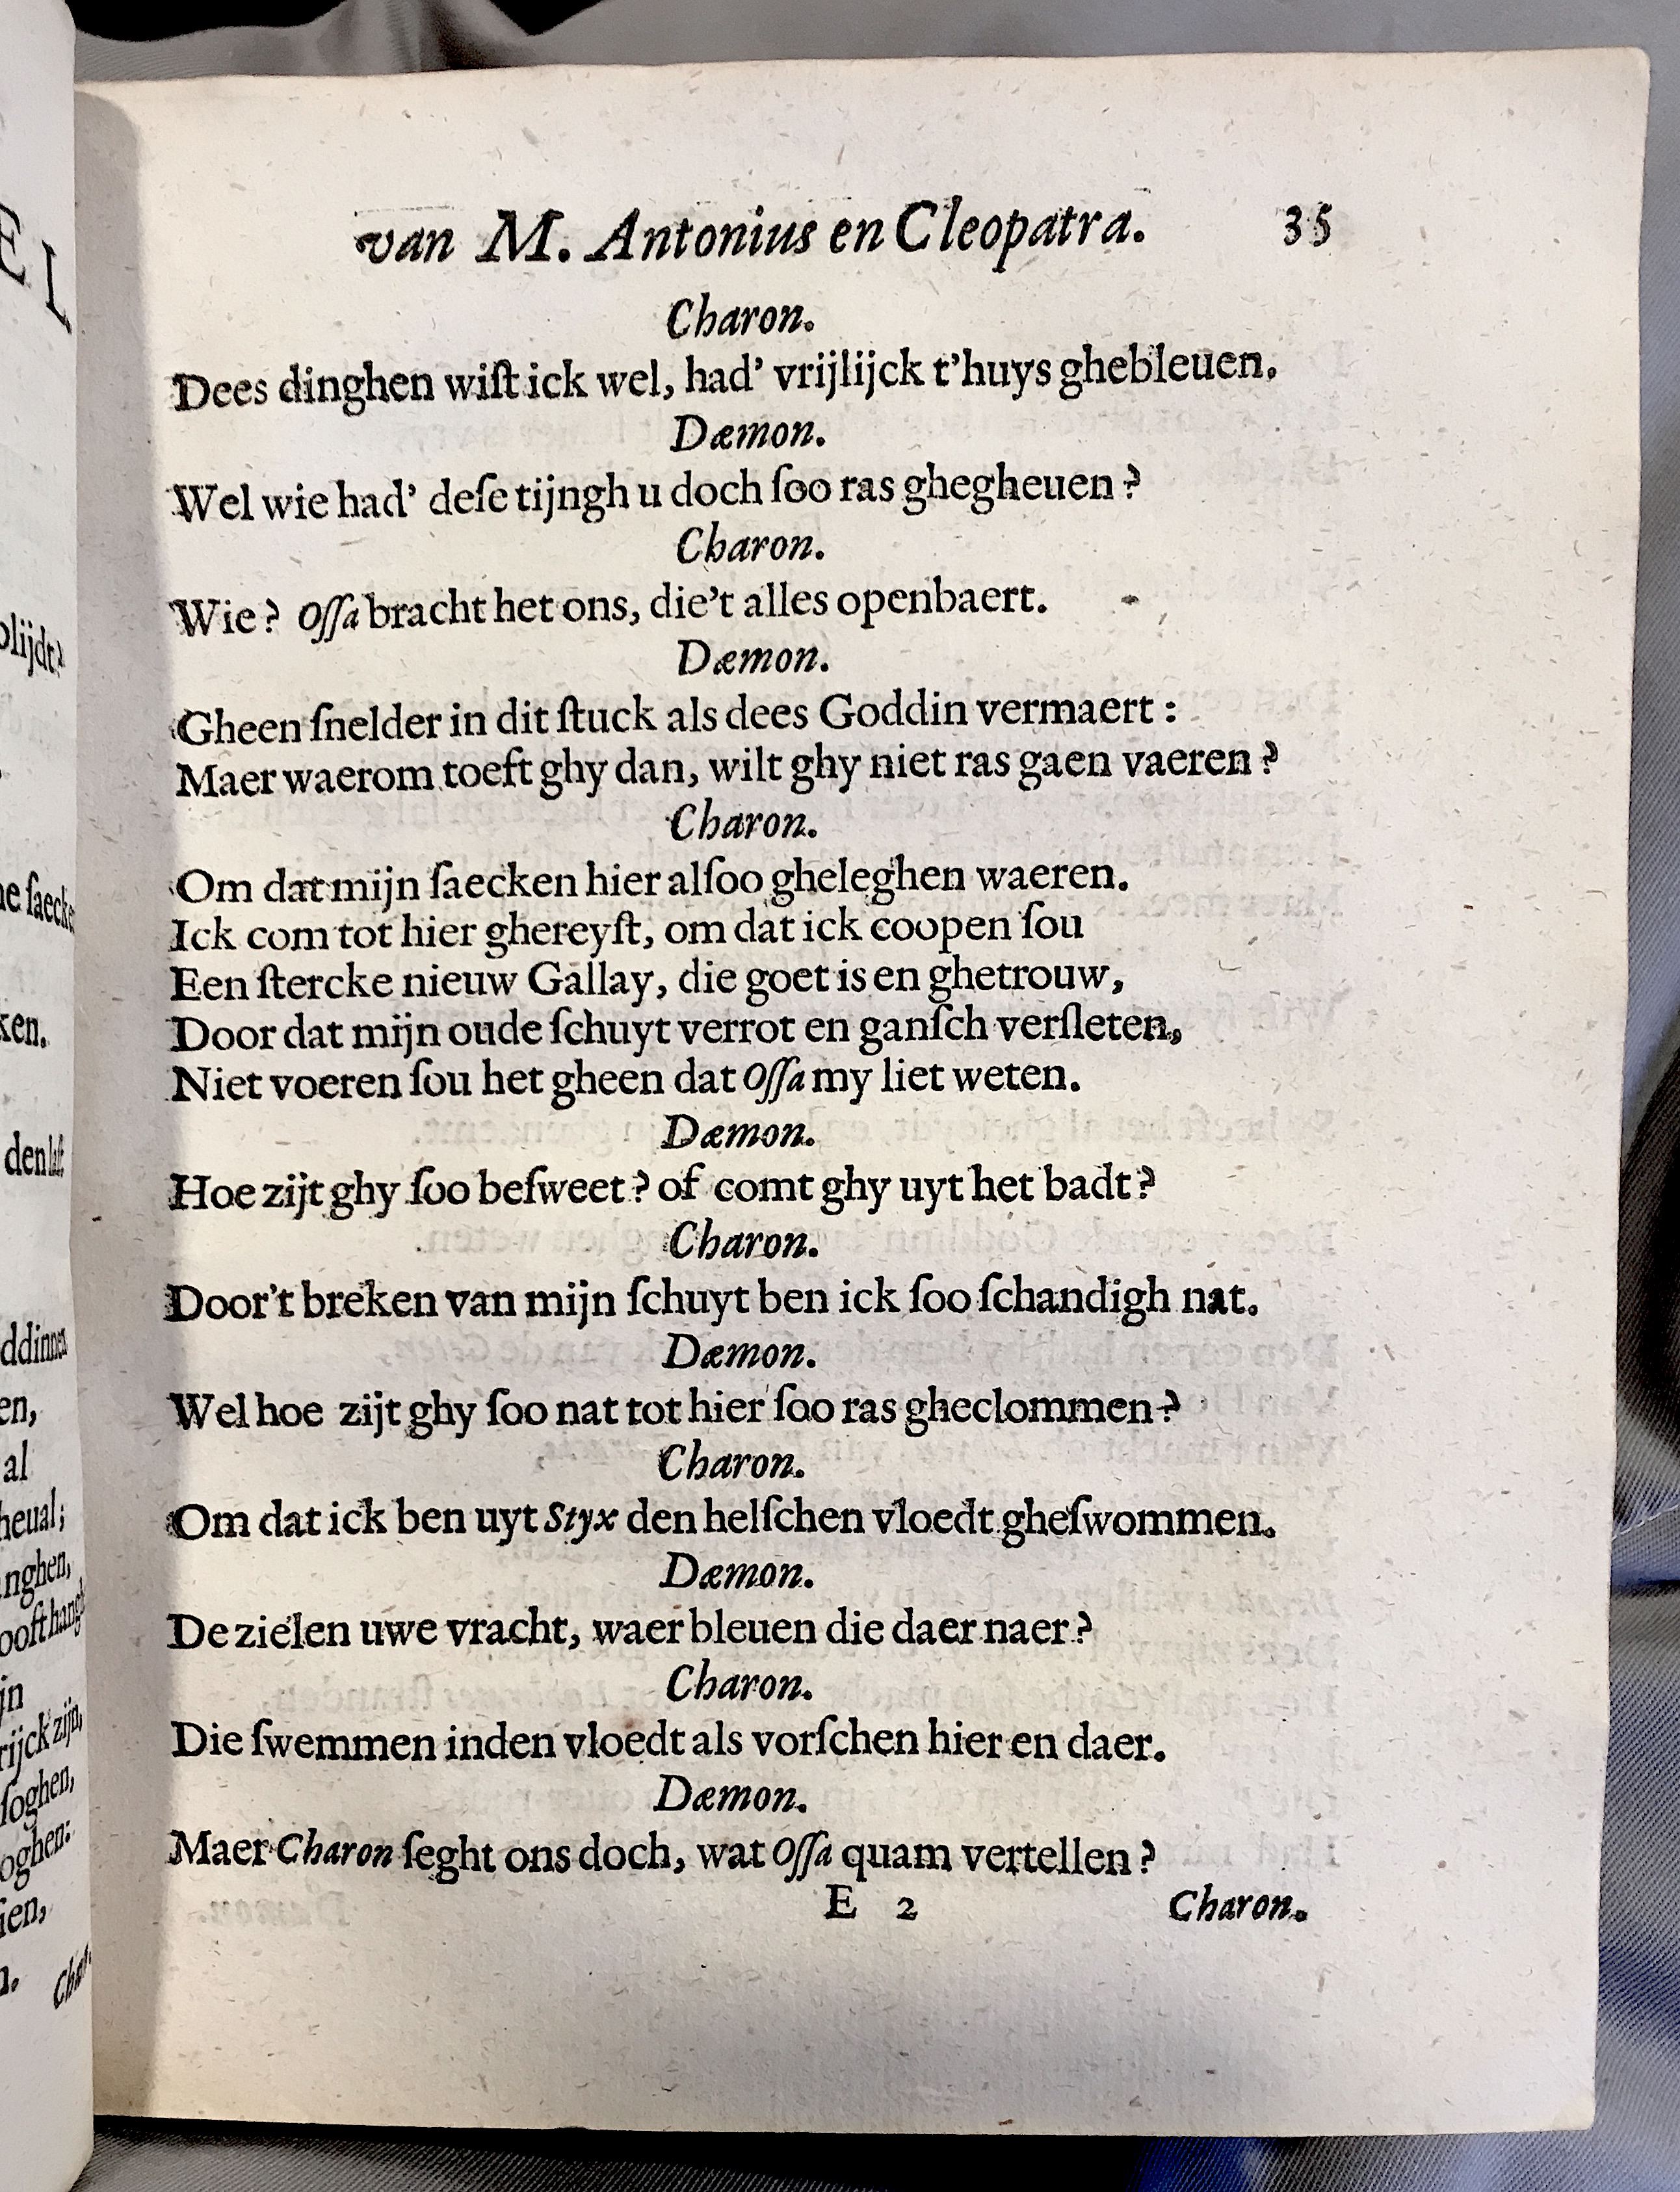 van M. Antonius en Cleopatra. 35
Charon.
Dees dinghen wiſt ick wel, had' vrijlijck t'huys ghebleuen.
Dæmon.
Wel wie had' deſe tijngh u doch ſoo ras ghegheuen?
Charon.
Wie? Oſſa bracht het ons, die't alles openbaert.
Dæmon.
Gheen ſnelder in dit ſtuck als dees Goddin vermaert:
Maer waerom toeft ghy dan, wilt ghy niet ras gaen vaeren?
Charon.
Om dat mijn ſaecken hier alſoo gheleghen waeren.
Ick com tot hier ghereyſt, om dat ick coopen ſou
Een ſtercke nieuw Gallay, die goet is en ghetrouw,
Door dat mijn oude ſchuyt verrot en ganſch verſleten,
Niet voeren ſou het gheen dat Oſſa my liet weten.
Dæmon.
Hoe zijt ghy ſoo beſweet? of comt ghy uyt het badt?
Charon.
Door't breken van mijn ſchuyt ben ick ſoo ſchandigh nat.
Dæmon.
Wel hoe zijt ghy ſoo nat tot hier ſoo ras gheclommen?
Charon.
Om dat ick ben uyt Styx den helſchen vloedt gheſwommen.
Dæmon.
De zielen uwe vracht, waer bleuen die daer naer?
Charon.
Die ſwemmen inden vloedt als vorſchen hier en daer.
Dæmon.
Maer Charon ſeght ons doch, wat Oſſa quam vertellen?
E 2 Charon.